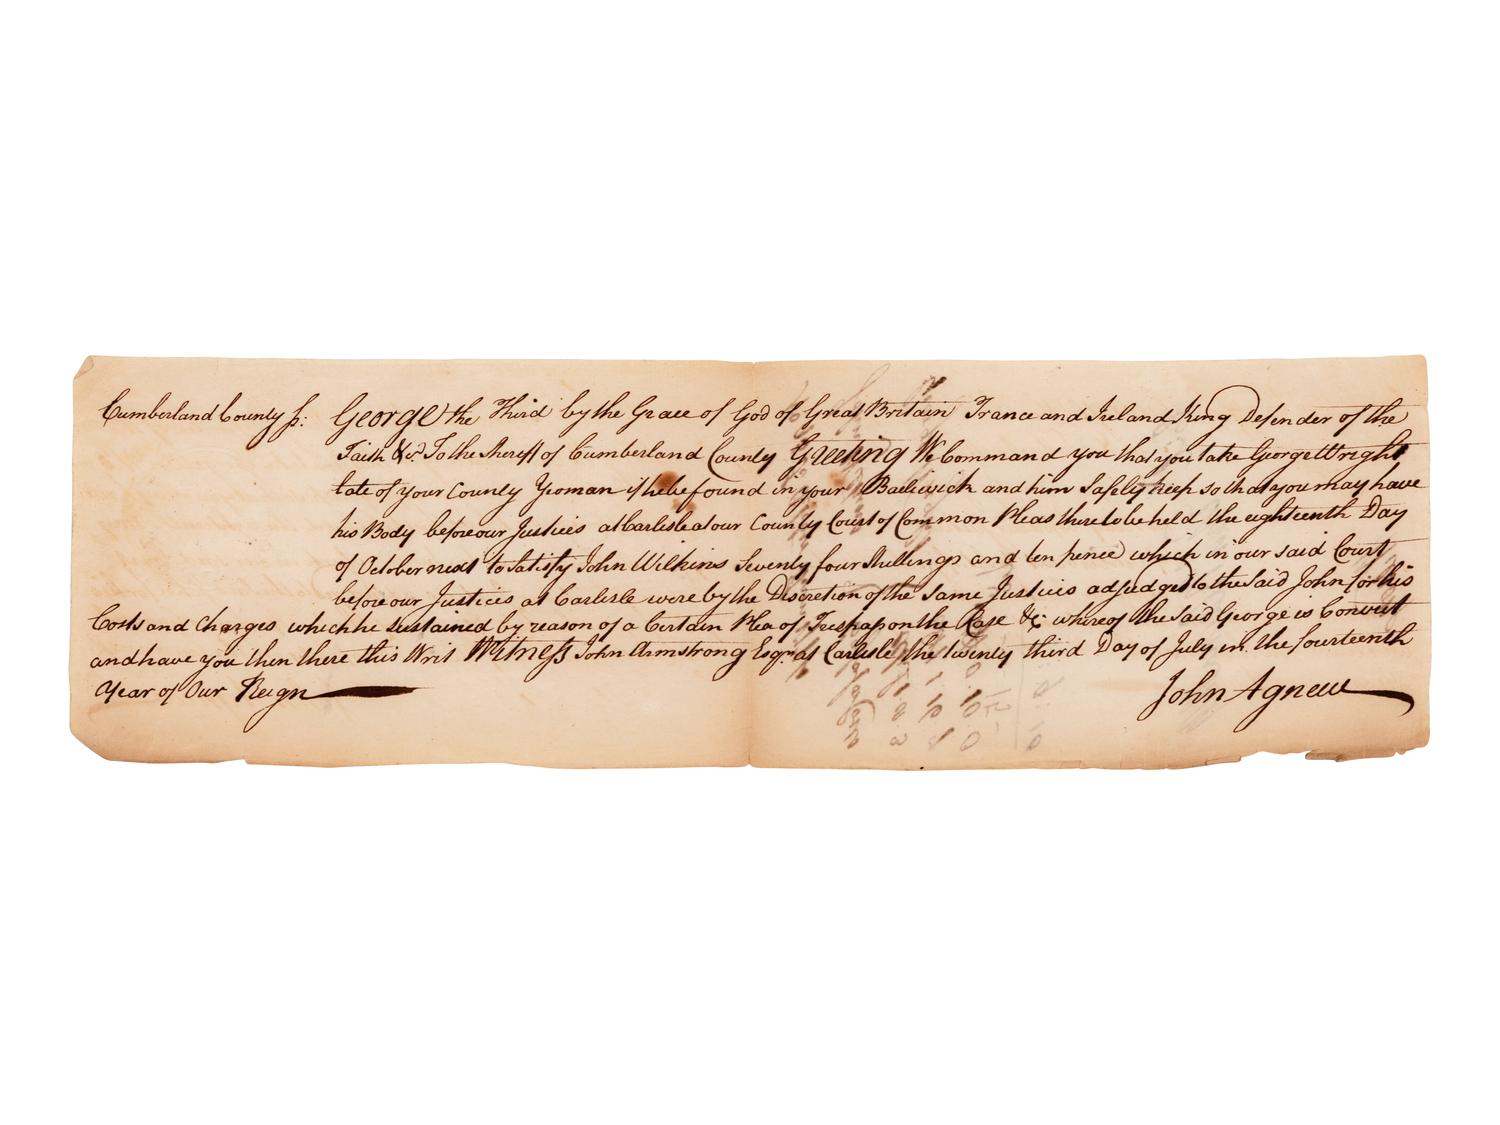 Cumberland County ss: George the Third by the Grace of God of Great Britain France and Ireland King Defender of the
Faith &c. To the Sheriff of Cumberland County Greeting We Command you that you take George Wright
late of your County Yeoman if he be found in your Bailiwick and him Safely keep so that you may have
his Body before our Justices at Carlisle at our County Court of Common Pleas there to be held the eighteenth Day
of October next to Satisfy John Wilkins Seventy four Shillings and ten pence which in our said Court
before our Justices at Carlisle were by the Discretion of the Same Justices adjudged to the Said John for his
Costs and Charges which he Sustained by reason of a Certain Plea of Trespass on the Case &c whereof the Said George is Convict
and have you then there this Writ Witness John Armstrong Esqr. at Carlisle the twenty third Day of July in the fourteenth
Year of Our Reign
John Agnew